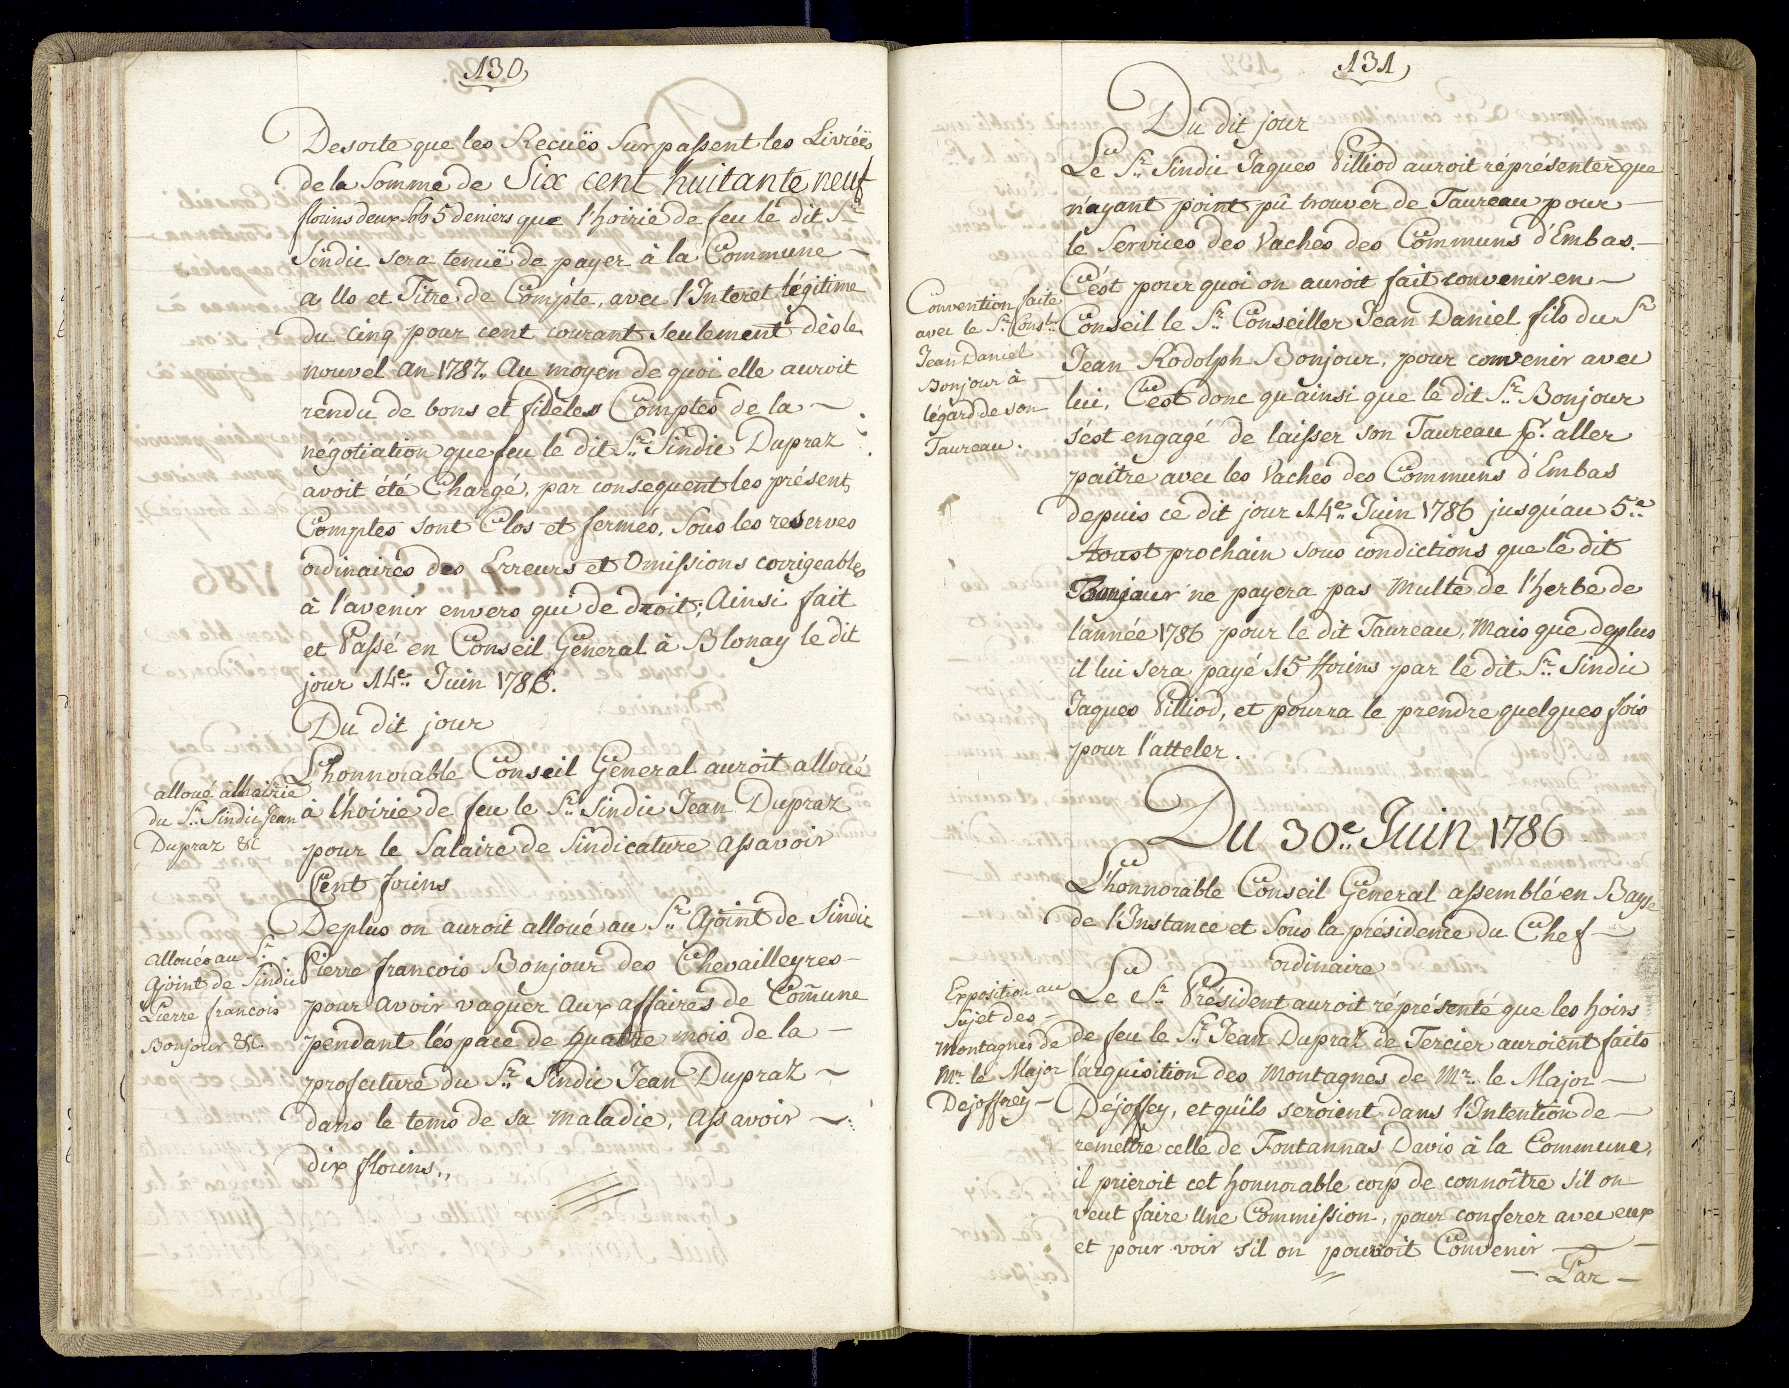 130
Desorte que les Recuës Surpassent les Livrées
de la Somme de Six cent huitante neuf
florins deux sols 5 deniers que l'hoirie de feu le dit Sr.
Sindic sera tenuë de payer à la Commune
a Us et Titre de Compte, avec l'Interet légitime
du cinq pour cent courant seulement dès le
nouvel an 1787. Au moyen de quoi elle auroit
rendu de bons et fidèles Comptes de la
négotiation que feu le dit Sr. Sindic Dupraz
avoit été Chargé, par consequent les présent
Comptes sont Clos et fermés, Sous les reserves
ordinaires des Erreurs et Omissions corrigeables
à l'avenir envers qui de droit; Ainsi fait
et Passé en Conseil General à Blonay le dit
jour 14e. Juin 1786.
Du dit jour
alloué a lhoirie
du Sr. Sindic Jean
Dupraz &c
L'honnorable Conseil General auroit alloué
à l'hoirie de feu le Sr. Sindic Jean Dupraz
pour le Salaire de Sindicature assavoir
Cent florins
Deplus on auroit alloué au Sr. Ajoint de Sindic
allouéo au Sr.
Ajoint de Sindic
Pierre francois
Bonjour &c.
Pierre francois Bonjour des Chevailleyres
pour avoir vaquer aux affaires de Com̃une
pendant léspace de quatre mois de la
profecture du Sr. Sindic Jean Dupraz
dans le tems de sa maladie, assavoir
dix florins.,
131
Du dit jour
Le Sr. Sindic Jaques Pilliod auroit réprésenter que
n'ayant point pû trouver de Taureau pour
le Services des Vaches des Communs d'Embas.
C'ést pour quoi on auroit fait convenir en
Convention faite
avec le Sr. Consler
Jean Daniel
Bonjour à
légard de son
Taureau.
Conseil le Sr. Conseiller Jean Daniel fils du Sr.
Jean Rodolph Bonjour, pour convenir avec
lui, C'est donc qu'ainsi que le dit Sr. Bonjour
s'ést engagé de laisser son Taureau pr. aller
paitre avec les Vaches des Communs d'Embas
depuis cè dit jour 14e. Juin 1786 jusqu'au 5.e
Aoust prochain sous condictions que le dit
Bonjour ne payera pas Multe de l'herbe de
l'année 1786 pour le dit Taureau, Mais que deplus
il lui sera payé 15 florins par le dit Sr. Sindic
Jaques Pilliod, et pourra le prendre quelques fois
pour l'atteler.
Du 30e. Juin 1786
L'honnorable Conseil General assemblé en Bayse
de l'Instance et Sous la présidence du Chef
ordinaire
Exposition au
Sujet des
montagnes de
Mr. le Major
Dejoffrey
Le Sr. Président auroit réprésenté que les hoirs
de feu le Sr. Jean Dupraz de Tercier auroient faits
l'acquisition des Montagnes de Mr. le Major
Déjoffey, et qu'ils seroient dans l'Intention de
remettre celle de Fontannas Davis à la Commune,
il prieroit cet honnorable corp de connoître s'il on
veut faire Une Commission, pour conferer avec eux
et pour voir s'il on pouroit Convenir
Par